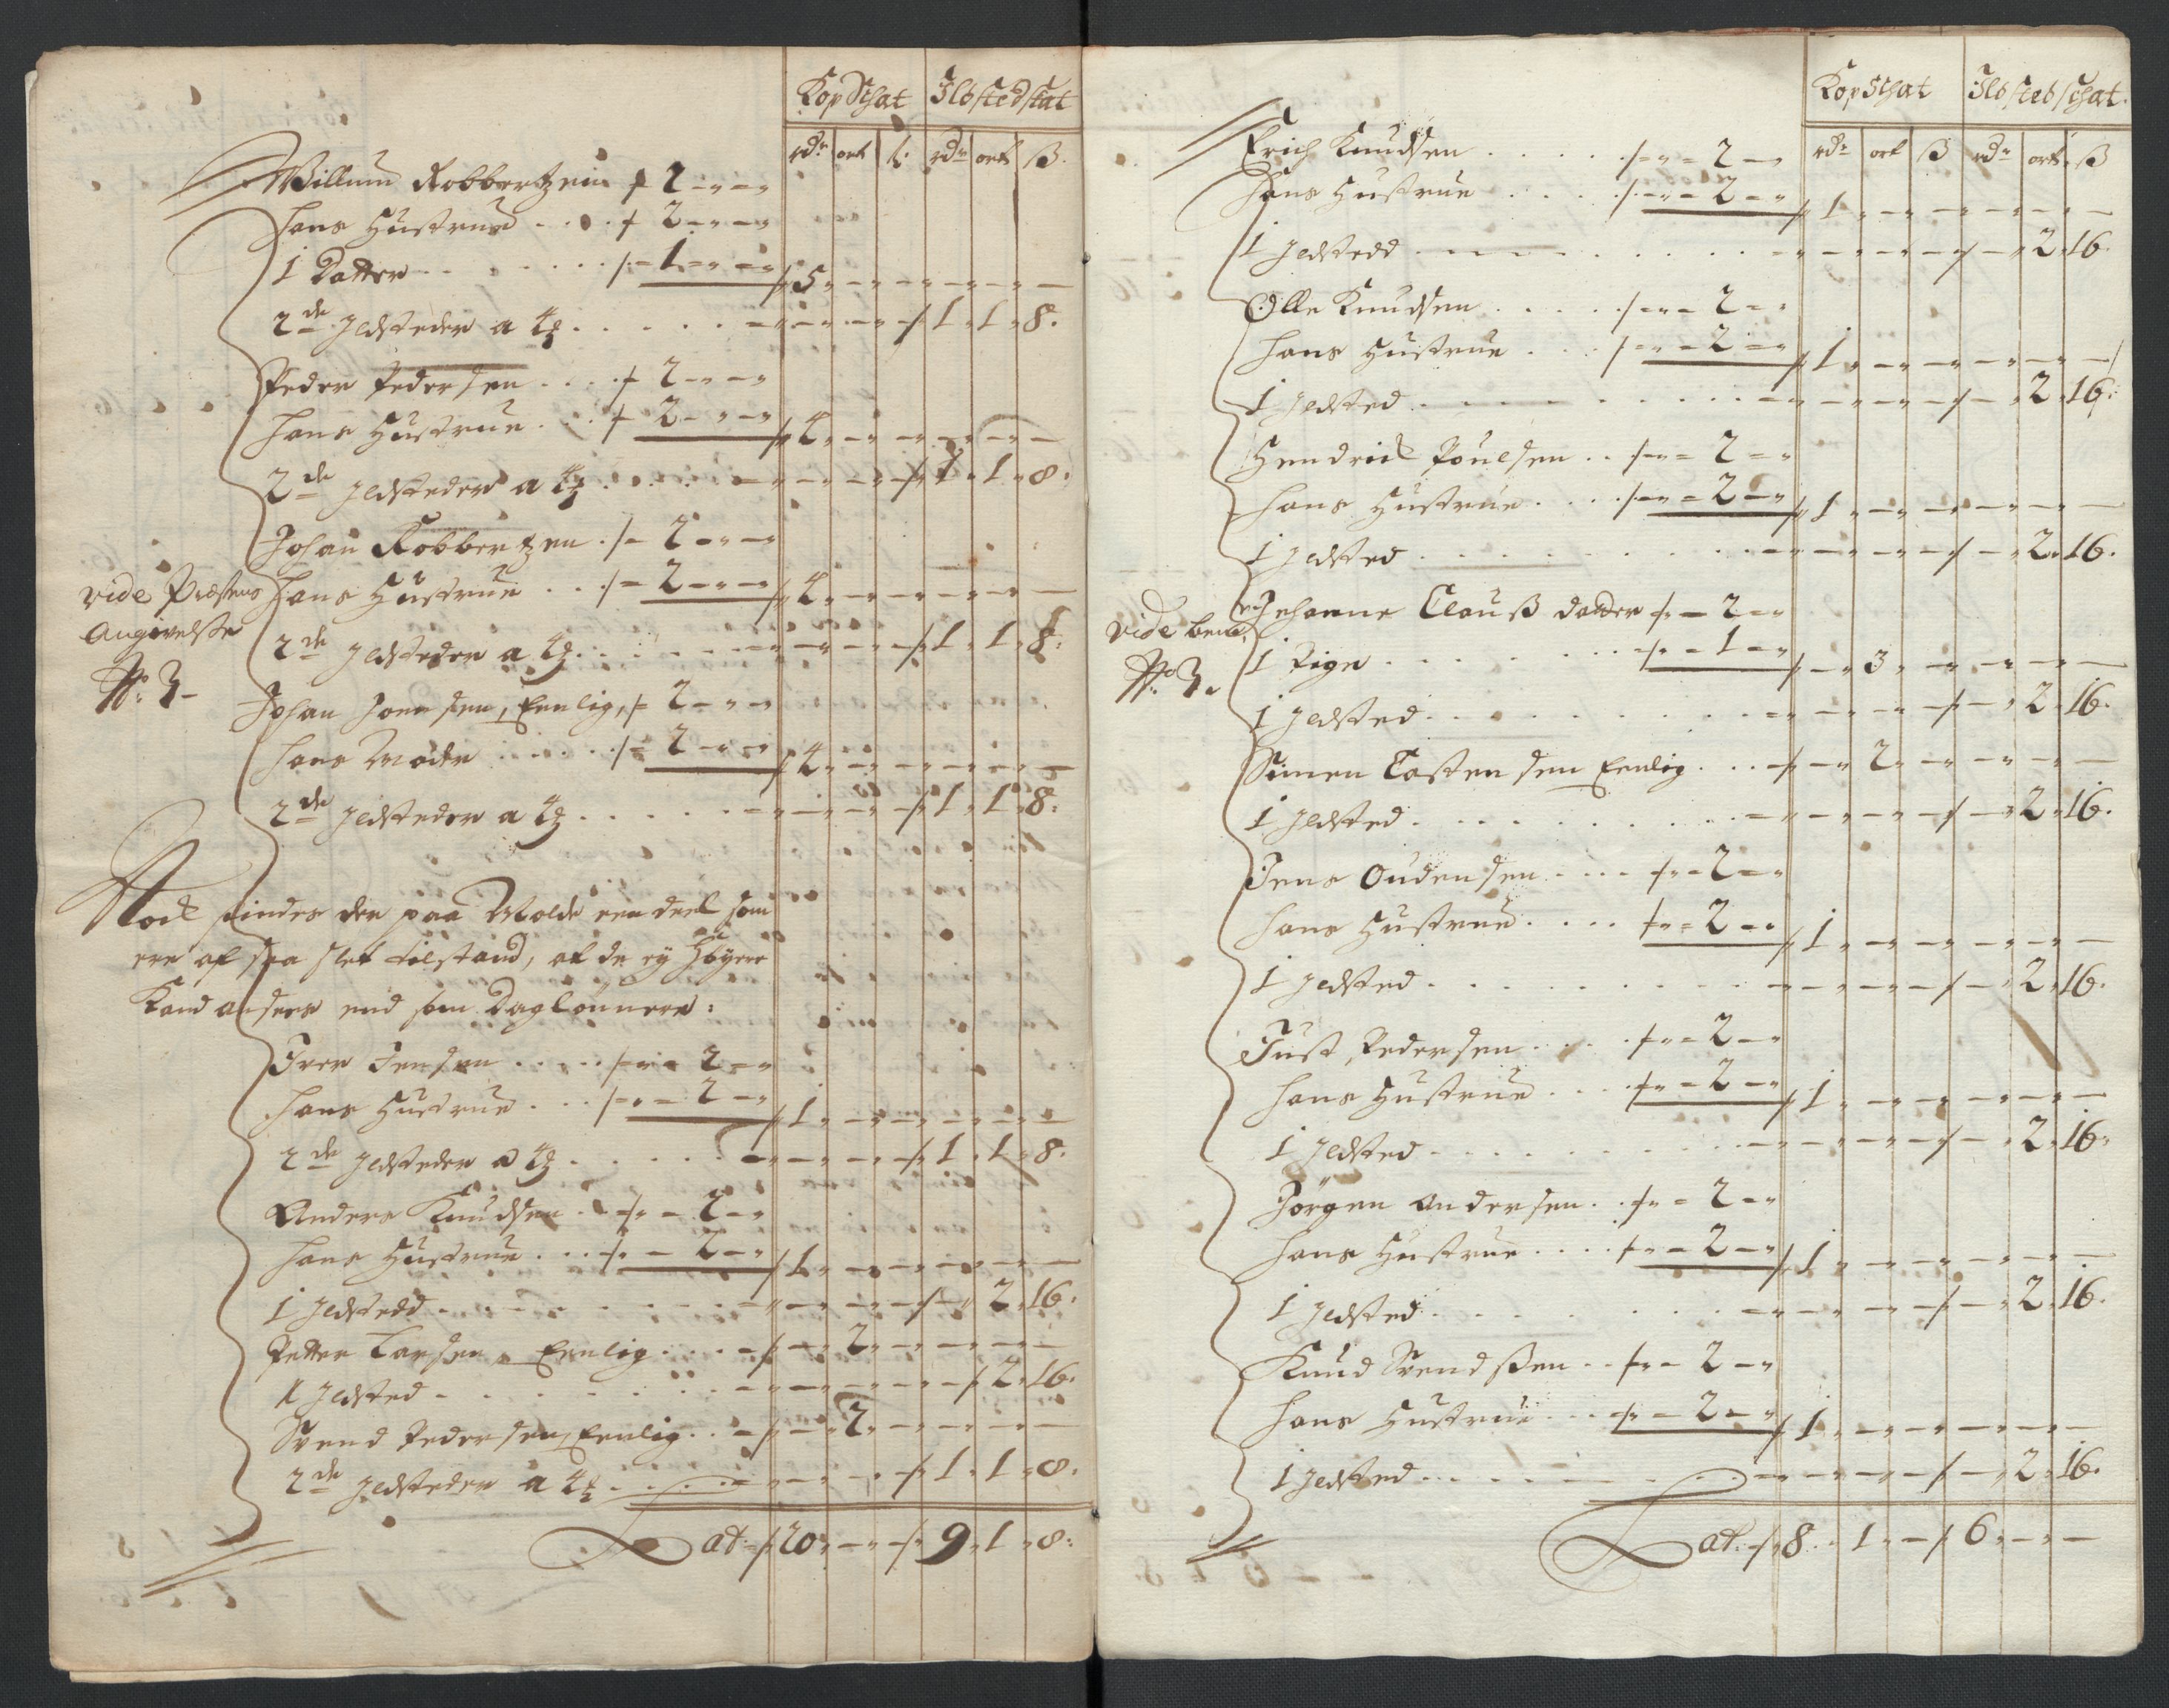 KopSchat Ildstedskat
rdr ort ß. rdr ort ß.
Willum Robbertzen / 2 - " - "
Hans Hustrue . . . / 2 - " - "
1 Datter . . . . /- 1 - " - " / 5 " - " - " - " -
2de Ildsteder a 4 . . . . . - " - " - / 1 " 1 " 8.
Peder Pedersen . . . / 2 - " - "
Hans Hustrue . . . / 2 - " - " / 4 " - " - " - " -
2de Ildsteder a 4 . . . . - " - " - / 1 " 1 " 8.
Johan Robbertzen ./- 2 - " - "
vide Præstens
Angivelse
No. 3-
Hans Hustrue . . ./- 2 - " - " / 4 " - " - " - " -
2de Ildsteder a 4 . . . . . - " - " - / 1 " 1 " 8:
Johan Joensen, Eenlig, /- 2 - " - "
Hans Moder . . . . ./- 2 - " - " / 4 " - " - " - " -
2de Ildsteder a 4 . . . . . - " - " - / 1 " 1 " 8:
Nock findes der paa Molde een deel som
ere af saa slet tilstand, at de ey Høyere
Kand ansees end som Daglönnere:
Iver Jensen . . . . . /- " - 2 - "
Hans Hustrue . . . /- " - 2 - " / 1 " - " - " - " -
2de Ildsteder a 4 . . . . . - " - " - / 1 " 1 " 8.
Anders Knudsen . . /- " - 2 - "
Hans Hustrue . . . /- " - 2 - " / 1 " - " - " - " -
1 Ildstedd . . . . . . . - " - " - / - " 2 " 16.
Petter Larsen, Eenlig . . . - / - " 2 " - " - " -
1 Ildsted . . . . . . . - " - " - / 2 " 16.
Svend Pedersen, Eenlig . . - / - " 2 " - " - " -
2de Ildsteder a 4 . . . . . - " - " - / 1 " 1 " 8.
Lat - / 20 " - " - / 9 " 1 " 8:
KopSchat Ildstedschat.
rdr ort ß rdr ort ß
Erich Knudsen . . . . . /- " - 2 - "
Hans Hustrue . . . . /- " - 2 - " / 1 " - " - " - " -
1 Ildstedd . . . . . . . . - " - " - / - " 2 " 16.
Olle Knudsen . . . . . /- " - 2 - "
Hans Hustrue . . . /- " - 2 - " / 1 " - " - " - " -
1 Ildsted . . . . . . . . - " - " - / - " 2 " 16.
Hendrick Poulsen . . /- " - 2 - "
Hans Hustrue . . . . /- " - 2 - " / 1 " - " - " - " -
1 Ildsted . . . . . . . . - " - " - / - " 2 " 16.
vide
No 3.
Johanne Clauß datter /- " - 2 - "
1 Pige . . . . . . . . /- " - 1 - " / - " 3 " - " - " -
1 Ildsted . . . . . . . . - " - " - / - " 2 " 16.
Simen Castensen Eenlig . . . / - " 2 " - " - " -
1 Ildsted . . . . . . . . - " - " - / - " 2 " 16.
Jens Oudensen . . . . /- " - 2 - "
Hans Hustrue . . . . /- " - 2 - " / 1 " - " - " - " -
1 Ildsted . . . . . . . . - " - " - / - " 2 " 16.
Just Pedersen . . . . /- " - 2 - "
Hans Hustrue . . . /- " - 2 - " / 1 " - " - " - " -
1 Ildsted . . . . . . . . - " - " - / - " 2 " 16.
Jörgen Andersen . . /- " - 2 - "
Hans Hustrue . . . . /- " - 2 - " / 1 " - " - " - " -
1 Ildsted . . . . . . . . - " - " - / - " 2 " 16.
Knud Svendßen . . /- " - 2 - "
Hans Hustrue . . . /- " - 2 - " / 1 " - " - " - " -
1 Ildsted . . . . . . . . - " - " - / - " 2 " 16.
Lat. - / 8 " 1 " - / 6 " - " -